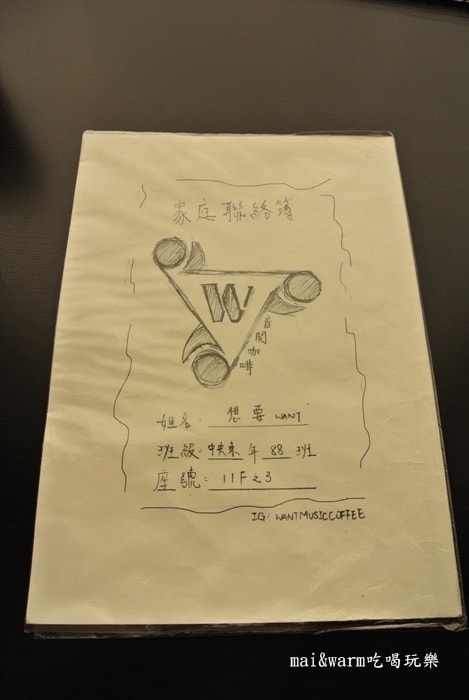 家庭聯絡簿
W
音閱咖啡
姓名: 想要 WANT
班級: 中央東 年 88 班
座號: 11F之3
IG: WANTMUSICCOFFEE
mai&warm吃喝玩樂